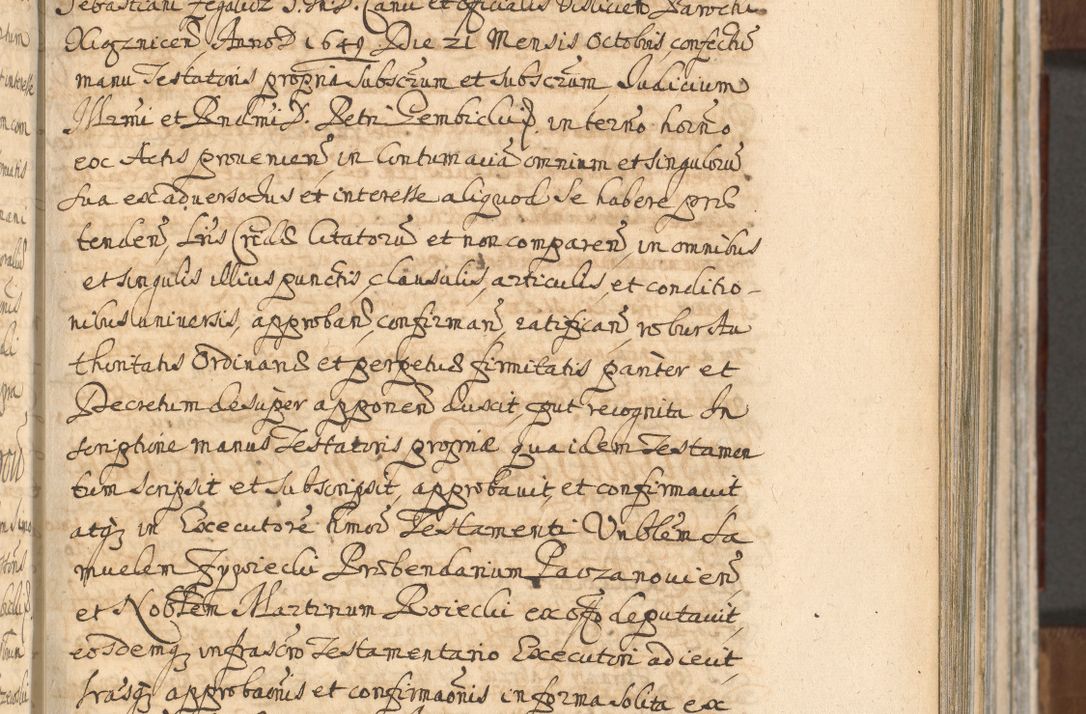 Sebastiani
Anno D 1649 Die 21 Mensis Octobris confectū
manu Testatoris propria subscrum et subscrum, Iudicium
Illrmi et Rndmi D. Petri Gembicki in terño horño
eoc Actis provenieñ in Contumaciā omnium et singuloru
sua ex adverso Ius et interesse aliquod se habere præ
tendeñ Lris Citatoru et non compareñ in omnibus
et singulis illius punctis, clausulis, articulis, et conditio-
nibus universis, approbañ, confirmañ, ratificañ robur Au
thoritatis Ordinariæ et perpetuæ firmitatis pariter et
Decretum desuper apponeñ duxit, put recognita In
scriptione manus Testatoris propriæ qua idem Testamen
tum scripsit et subscripsit, approbavit, et confirmavit
atq; in Executore hmoi Testamenti Vnblem Sa
muelem Zywiecki Præbendarium
et Noblem Martinum Roiecki ex offo deputavit,
eosdemq; infrascro Testamentario Executori adiecit
lrasq; approbaonis et confirmaonis in forma solita ex